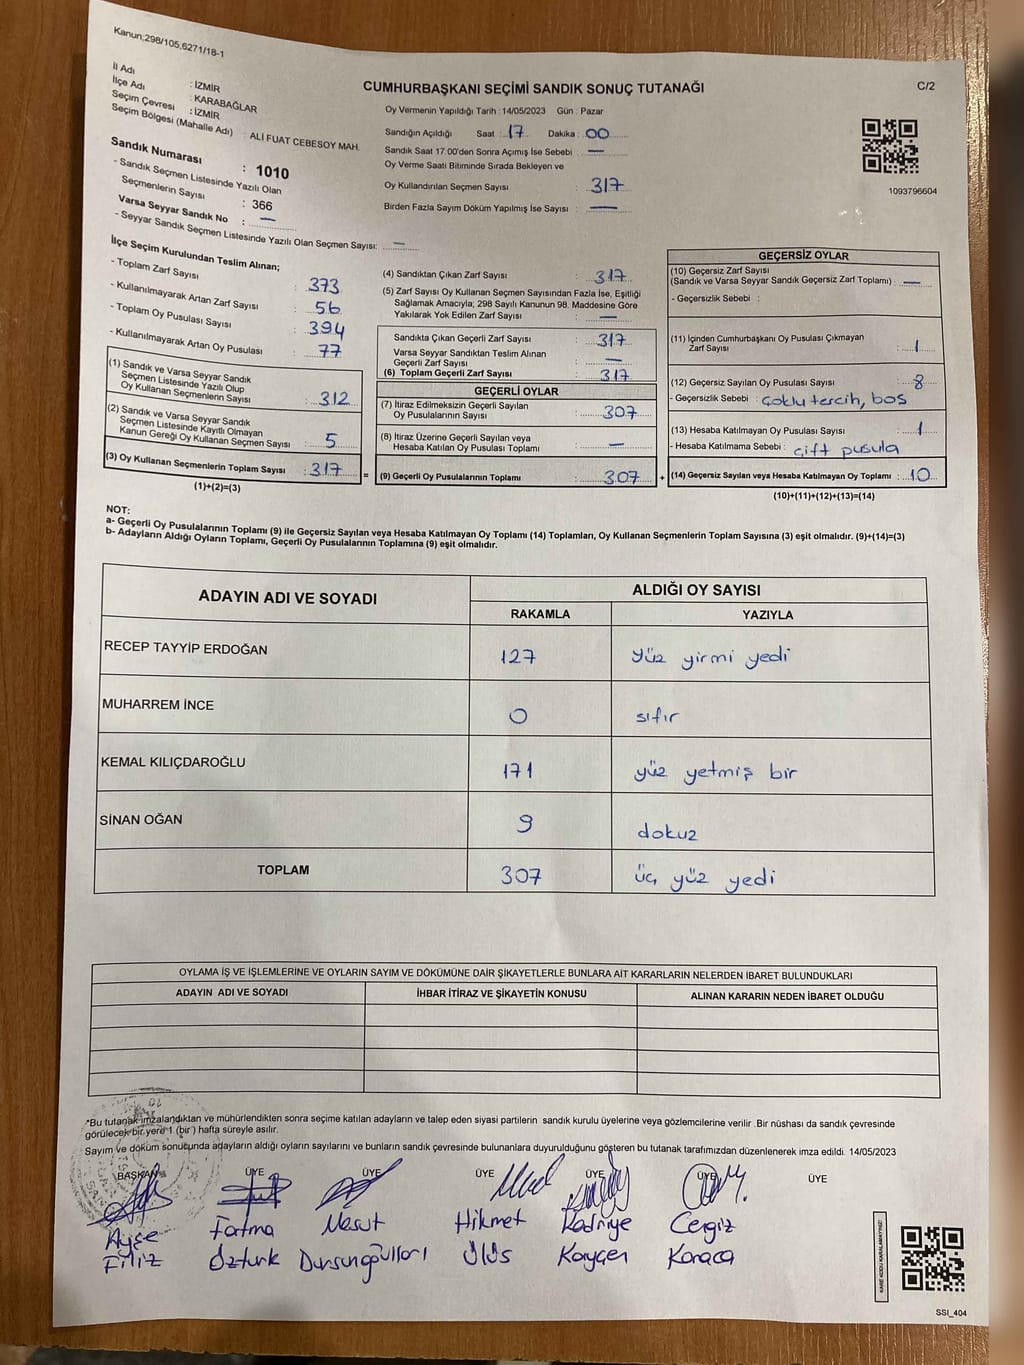 Kanun;298/105,6271/18-1
İl Adı : İZMİR
İlçe Adı : KARABAĞLAR
Seçim Çevresi : İZMİR
Seçim Bölgesi (Mahalle Adı) : ALİ FUAT CEBESOY MAH.
Sandık Numarası : 1010
- Sandık Seçmen Listesinde Yazılı Olan Seçmenlerin Sayısı : 366
Varsa Seyyar Sandık No : —
- Seyyar Sandık Seçmen Listesinde Yazılı Olan Seçmen Sayısı: —
CUMHURBAŞKANI SEÇİMİ SANDIK SONUÇ TUTANAĞI
C/2
Oy Vermenin Yapıldığı Tarih : 14/05/2023 Gün : Pazar
Sandığın Açıldığı Saat : 17 Dakika : 00
Sandık Saat 17:00'den Sonra Açımış İse Sebebi : —
Oy Verme Saati Bitiminde Sırada Bekleyen ve
Oy Kullandırılan Seçmen Sayısı : 317
Birden Fazla Sayım Döküm Yapılmış İse Sayısı : —
1093796604
İlçe Seçim Kurulundan Teslim Alınan;
- Toplam Zarf Sayısı : 373
- Kullanılmayarak Artan Zarf Sayısı : 56
- Toplam Oy Pusulası Sayısı : 394
- Kullanılmayarak Artan Oy Pusulası : 77
(1) Sandık ve Varsa Seyyar Sandık
Seçmen Listesinde Yazılı Olup
Oy Kullanan Seçmenlerin Sayısı : 312
(2) Sandık ve Varsa Seyyar Sandık
Seçmen Listesinde Kayıtlı Olmayan
Kanun Gereği Oy Kullanan Seçmen Sayısı : 5
(3) Oy Kullanan Seçmenlerin Toplam Sayısı : 317 =
(1)+(2)=(3)
(4) Sandıktan Çıkan Zarf Sayısı : 317
(5) Zarf Sayısı Oy Kullanan Seçmen Sayısından Fazla İse, Eşitliği
Sağlamak Amacıyla; 298 Sayılı Kanunun 98. Maddesine Göre
Yakılarak Yok Edilen Zarf Sayısı : —
Sandıkta Çıkan Geçerli Zarf Sayısı : 317
Varsa Seyyar Sandıktan Teslim Alınan
Geçerli Zarf Sayısı : —
(6) Toplam Geçerli Zarf Sayısı : 317
GEÇERLİ OYLAR
(7) İtiraz Edilmeksizin Geçerli Sayılan
Oy Pusulalarının Sayısı : 307
(8) İtiraz Üzerine Geçerli Sayılan veya
Hesaba Katılan Oy Pusulası Toplamı : —
(9) Geçerli Oy Pusulalarının Toplamı : 307 +
GEÇERSİZ OYLAR
(10) Geçersiz Zarf Sayısı
(Sandık ve Varsa Seyyar Sandık Geçersiz Zarf Toplamı) : —
- Geçersizlik Sebebi :
(11) İçinden Cumhurbaşkanı Oy Pusulası Çıkmayan
Zarf Sayısı : 1
(12) Geçersiz Sayılan Oy Pusulası Sayısı : 8
- Geçersizlik Sebebi : çoklu tercih, boş
(13) Hesaba Katılmayan Oy Pusulası Sayısı : 1
- Hesaba Katılmama Sebebi : çift pusula
(14) Geçersiz Sayılan veya Hesaba Katılmayan Oy Toplamı : 10
(10)+(11)+(12)+(13)=(14)
NOT:
a- Geçerli Oy Pusulalarının Toplamı (9) ile Geçersiz Sayılan veya Hesaba Katılmayan Oy Toplamı (14) Toplamları, Oy Kullanan Seçmenlerin Toplam Sayısına (3) eşit olmalıdır. (9)+(14)=(3)
b- Adayların Aldığı Oyların Toplamı, Geçerli Oy Pusulalarının Toplamına (9) eşit olmalıdır.
ADAYIN ADI VE SOYADI ALDIĞI OY SAYISI
RAKAMLA YAZIYLA
RECEP TAYYİP ERDOĞAN 127 yüz yirmi yedi
MUHARREM İNCE 0 sıfır
KEMAL KILIÇDAROĞLU 171 yüz yetmiş bir
SİNAN OĞAN 9 dokuz
TOPLAM 307 üç yüz yedi
OYLAMA İŞ VE İŞLEMLERİNE VE OYLARIN SAYIM VE DÖKÜMÜNE DAİR ŞİKAYETLERLE BUNLARA AİT KARARLARIN NELERDEN İBARET BULUNDUKLARI
ADAYIN ADI VE SOYADI İHBAR İTİRAZ VE ŞİKAYETİN KONUSU ALINAN KARARIN NEDEN İBARET OLDUĞU
*Bu tutanak imzalandıktan ve mühürlendikten sonra seçime katılan adayların ve talep eden siyasi partilerin sandık kurulu üyelerine veya gözlemcilerine verilir. Bir nüshası da sandık çevresinde
görülecek bir yere 1 (bir) hafta süreyle asılır.
Sayım ve döküm sonucunda adayların aldığı oyların sayılarını ve bunların sandık çevresinde bulunanlara duyurulduğunu gösteren bu tutanak tarafımızdan düzenlenerek imza edildi. 14/05/2023
BAŞKAN ÜYE ÜYE ÜYE ÜYE ÜYE ÜYE
Ayşe Fatma Mesut Hikmet Kadriye Cengiz
Filiz Öztürk Dursungülları Ülüs Kayçen Karaca
KARE KODU KARALAMAYINIZ!
SSI_404